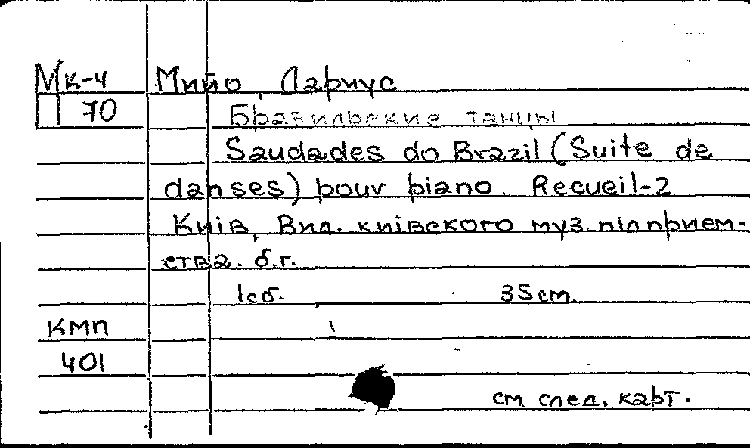 Мк-4 Мийо, Дариус
П 70 Бразильские танцы
Saudades do Brazil (Suite de
danses) pour piano. Recueil-2
Київ, Вид. київского муз. підприєм-
ства. б.г.
1сб. 35см.
КМП
401
см. след. карт.